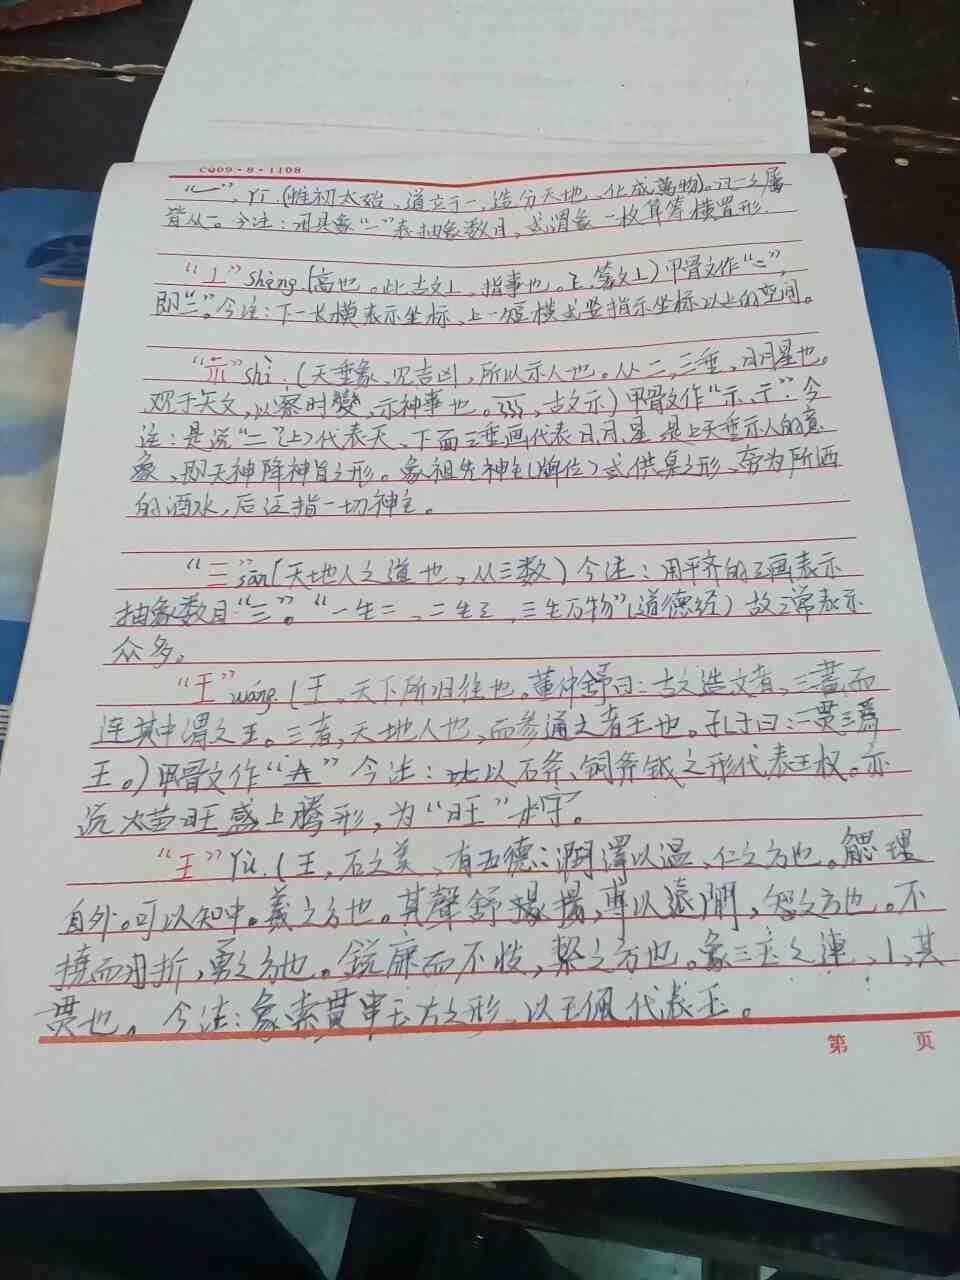 CQ09·8·1108
“一”，Yī.(惟初太始，道立于一，造分天地，化成萬物)。凡一之屬
皆从一。今注：用具象“一”表抽象数目，或谓象一枚算筹横置形.
“丄”shàng.(高也。此古文上，指事也。丄，篆文上)甲骨文作“二”，
即“二”。今注：下一长横表示坐标，上一短横或竖指示坐标以上的空间。
“示”shì.(天垂象，见吉凶，所以示人也。从二，三垂，日月星也。
观于天文，以察时變，示神事也。古文示)甲骨文作“示、丅”.今
注：是说“二”(上)代表天，下面三垂画代表日月星，是上天垂示人的意
象，即天神降神旨之形。象祖先神主(牌位)或供桌之形，旁为所洒
的酒水，后泛指一切神主。
“三”sān(天地人之道也，从三数)今注：用平齐的三画表示
抽象数目“三”。“一生二，二生三，三生万物”(道德经)故三常表示
众多。
“王”wáng.(王，天下所归往也。董仲舒曰：古之造文者，三畫而
连其中谓之王。三者，天地人也，而参通之者王也。孔子曰：一贯三爲
王。)甲骨文作“”今注：此以石斧、铜斧钺之形代表王权。亦
说火苗旺盛上腾形，为“旺”本字。
“王”Yù.(王，石之美，有五德：潤澤以温，仁之方也。䚡理
自外。可以知中。義之方也。其聲舒揚，專以遠聞，智之方也。不
撓而折，勇之方也。鋭廉而不忮，絜之方也。象三玉之連，丨，其
贯也。今注：象索贯串玉片之形，以玉佩代表玉。
第 页